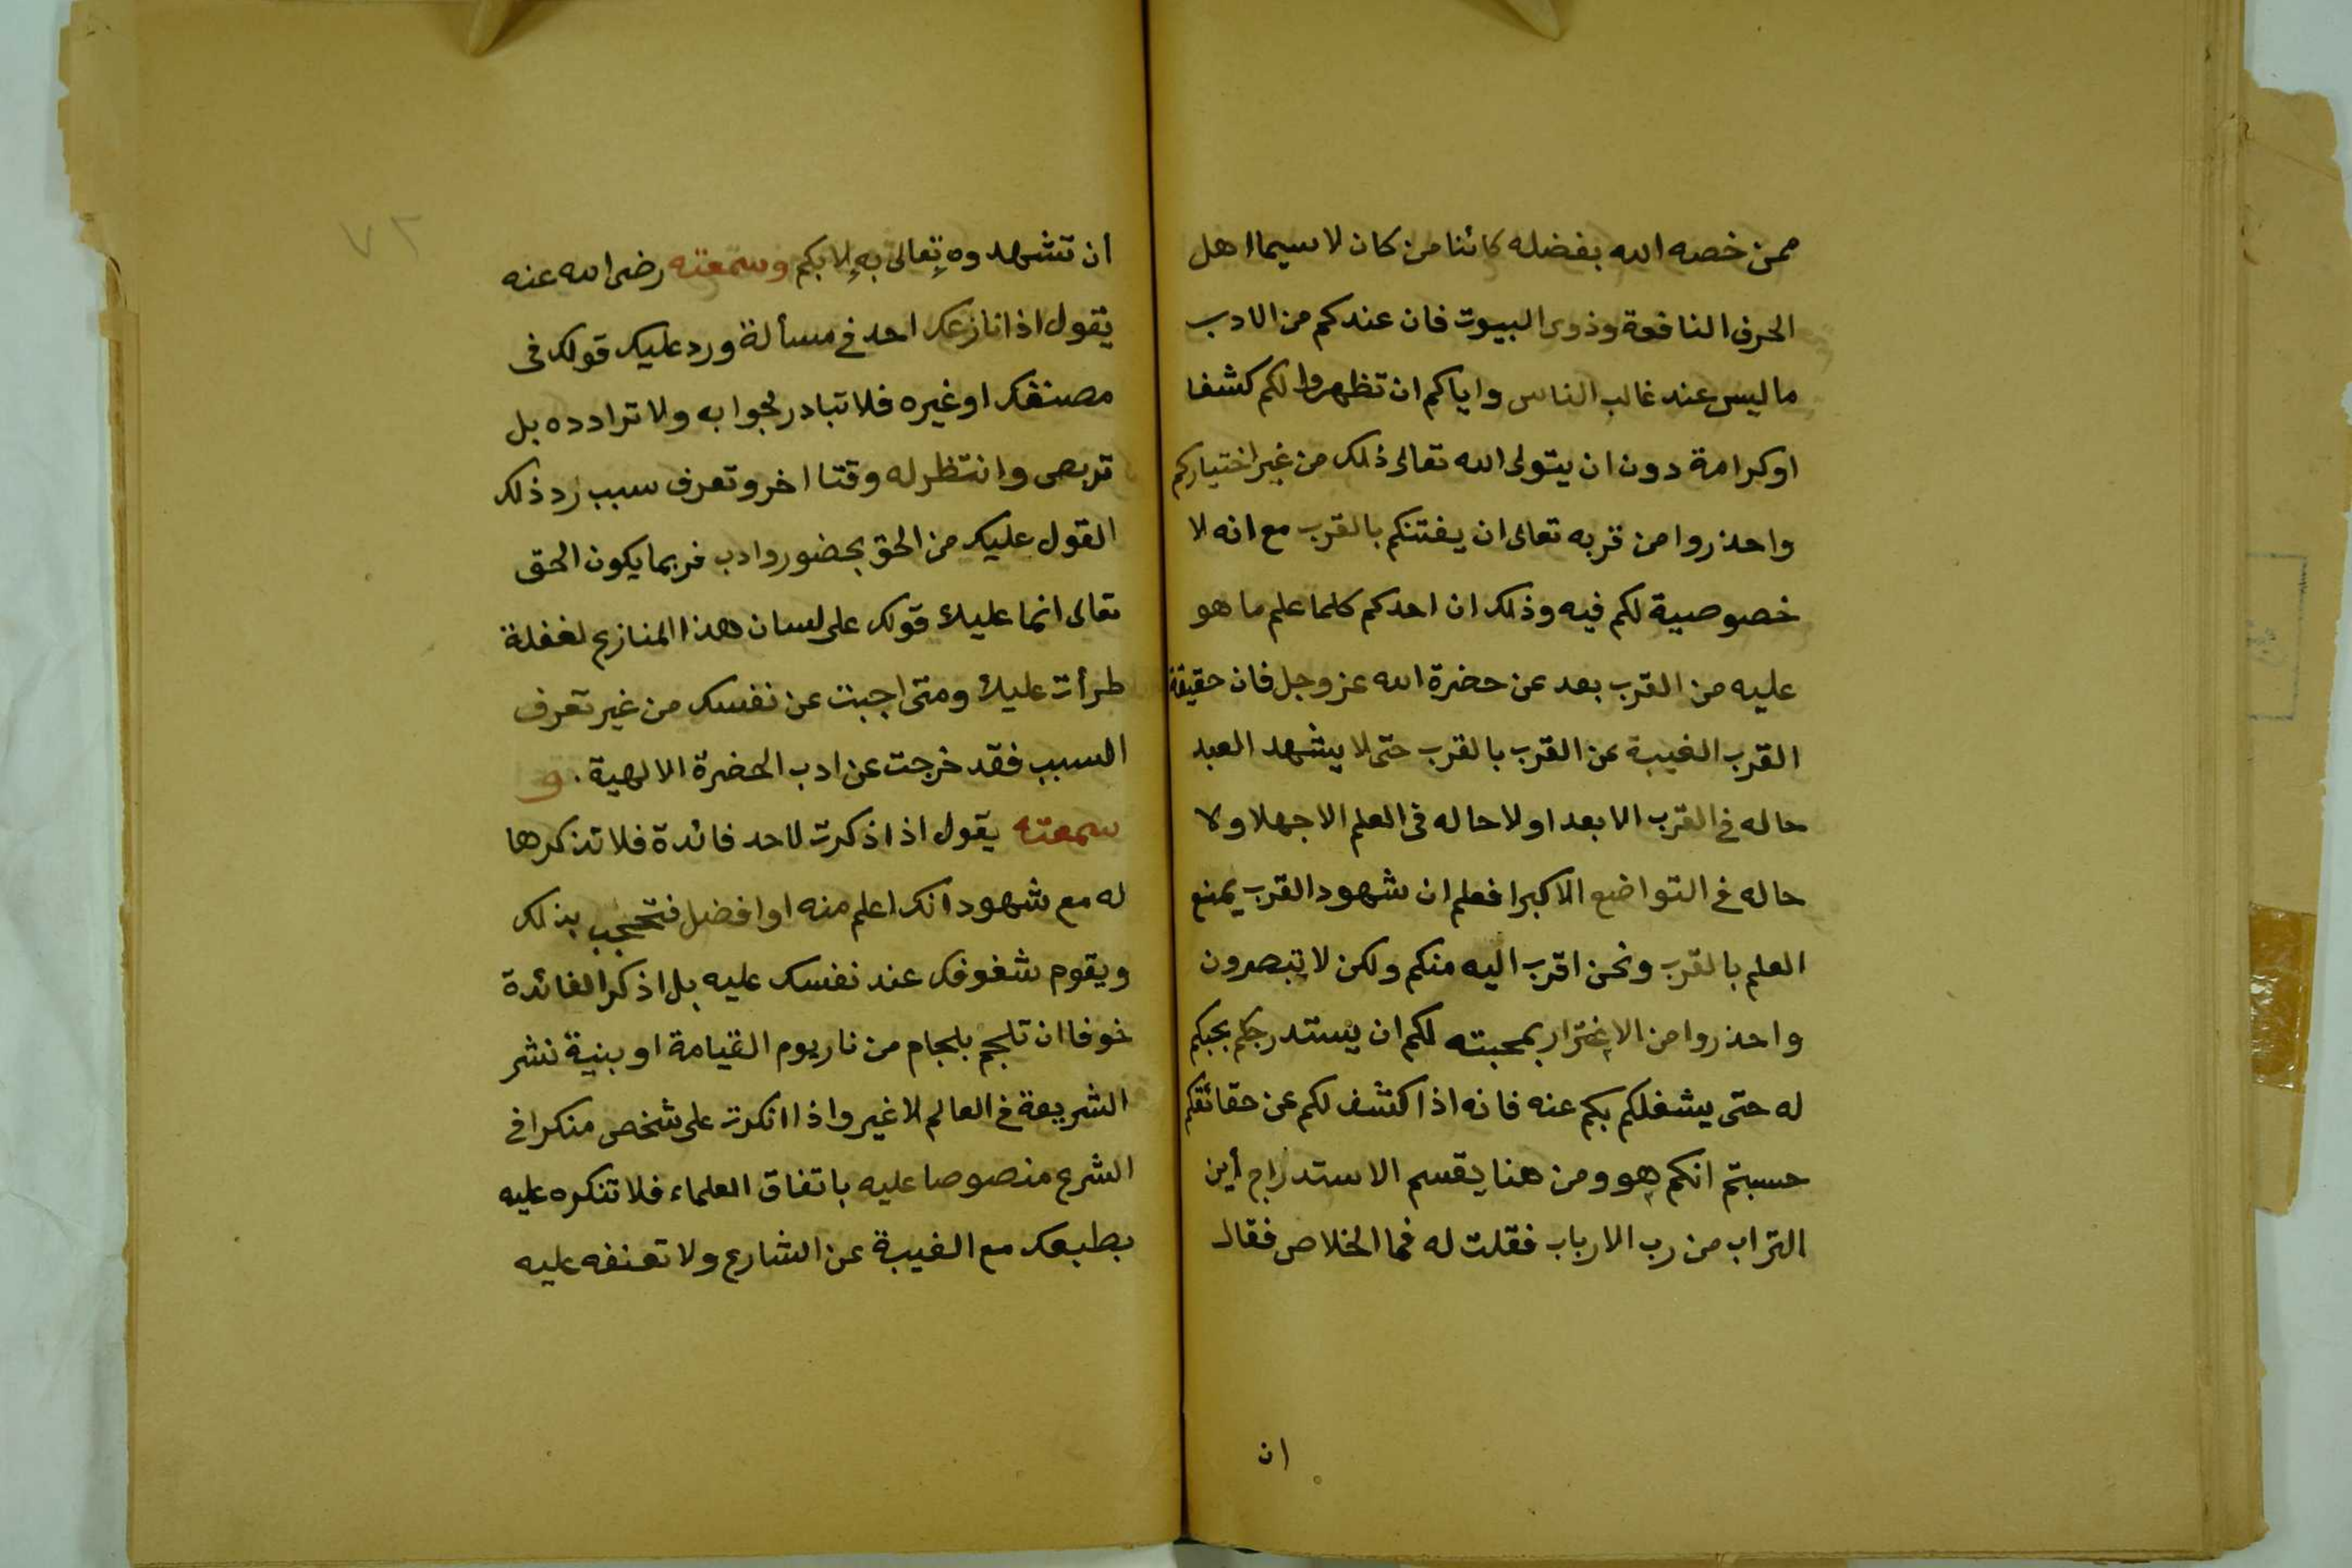 ممن خصه الله بفضله كائنا من كان لا سيما اهل
الحرف النافعة وذوى البيوت فان عندكم من الادب
ما ليس عند غالب الناس واياكم ان تظهروا لكم كشفا
او كرامة دون ان يتولى الله تعالى ذلك من غير اختياركم
واحذروا من قربه تعالى ان يفتنكم بالقرب مع انه لا
خصوصية لكم فيه وذلك ان احدكم كلما علم ما هو
عليه من القرب بعد عن حضرة الله عز وجل فان حقيقة
القرب الغيبة عن القرب بالقرب حتى لا يشهد العبد
حاله فى القرب الا بعدا ولا حاله فى العلم الا جهلا ولا
حاله فى التواضع الا كبرا فعلم ان شهود القرب يمنع
العلم بالقرب ونحن اقرب اليه منكم ولكن لا تبصرون
واحذروا من الاغترار بمحبته لكم ان يستدرجكم بحبكم
له حتى يشغلكم بكم عنه فانه اذا كشف لكم عن حقائقكم
حسبتم انكم هو ومن هنا يقسم الاستدراج أين
التراب من رب الارباب فقلت له فما الخلاص فقال
ان
٧٢
أن تشهدوه تعالى به لا بكم وسمعته رضى الله عنه
يقول اذا نازعك احد فى مسألة ورد عليك قولك فى
مصنفك او غيره فلا تبادر لجوابه ولا ترادده بل
تربص وانتظر له وقتا اخر وتعرف سبب رد ذلك
القول عليك من الحق بحضور وادب فربما يكون الحق
تعالى انما عليك قولك على لسان هذا المنازع لغفلة
طرأت عليك ومتى اجبت عن نفسك من غير تعرف
السبب فقد خرجت عن ادب الحضرة الالهية . و
سمعته يقول اذا ذكرت لاحد فائدة فلا تذكرها
له مع شهود انك اعلم منه او افضل فتحجب بذلك
ويقوم شغوفك عند نفسك عليه بل اذكر الفائدة
خوفا ان تلجم بلجام من نار يوم القيامة او بنية نشر
الشريعة فى العالم لا غير واذا انكرت على شخص منكرا فى
الشرع منصوصا عليه باتفاق العلماء فلا تنكره عليه
بطبعك مع الغيبة عن الشارع ولا تعنفه عليه